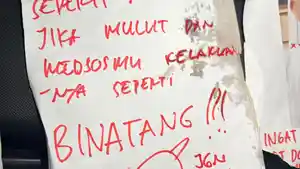 SEPERTI
JIKA MULUT DAN
MEDSOSMU KELAKUAN
-NYA SEPERTI
BINATANG !!!
JGN
INGAT